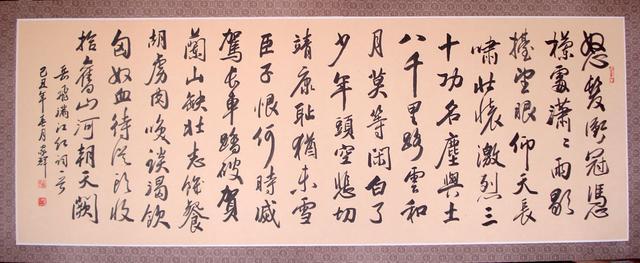 怒髮衝冠憑
欄處瀟々雨歇
擡望眼仰天長
嘯壯懷激烈三
十功名塵與土
八千里路雲和
月莫等閑白了
少年頭空悲切
靖康耻猶未雪
臣子恨何時滅
駕長車踏破賀
蘭山缺壯志飢餐
胡虜肉咲談渴飲
匈奴血待從頭收
拾舊山河朝天闕
岳飛滿江紅詞
己丑年